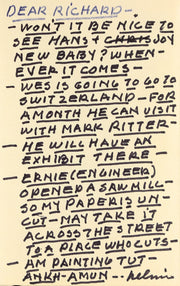 DEAR RICHARD-
- WON'T IT BE NICE TO
SEE HANS + CHRIS JOY
NEW BABY? WHEN-
EVER IT COMES -
- WES IS GOING TO GO TO
SWITZERLAND - FOR
A MONTH HE CAN VISIT
WITH MARK RITTER-
- HE WILL HAVE AN
EXHIBIT THERE -
- ERNIE (ENGINEER)
OPENED A SAW MILL -
SO MY PAPER IS UN-
CUT - MAY TAKE IT
ACROSS THE STREET
TO A PLACE WHO CUTS-
- AM PAINTING TUT-
ANKH-AMUN --